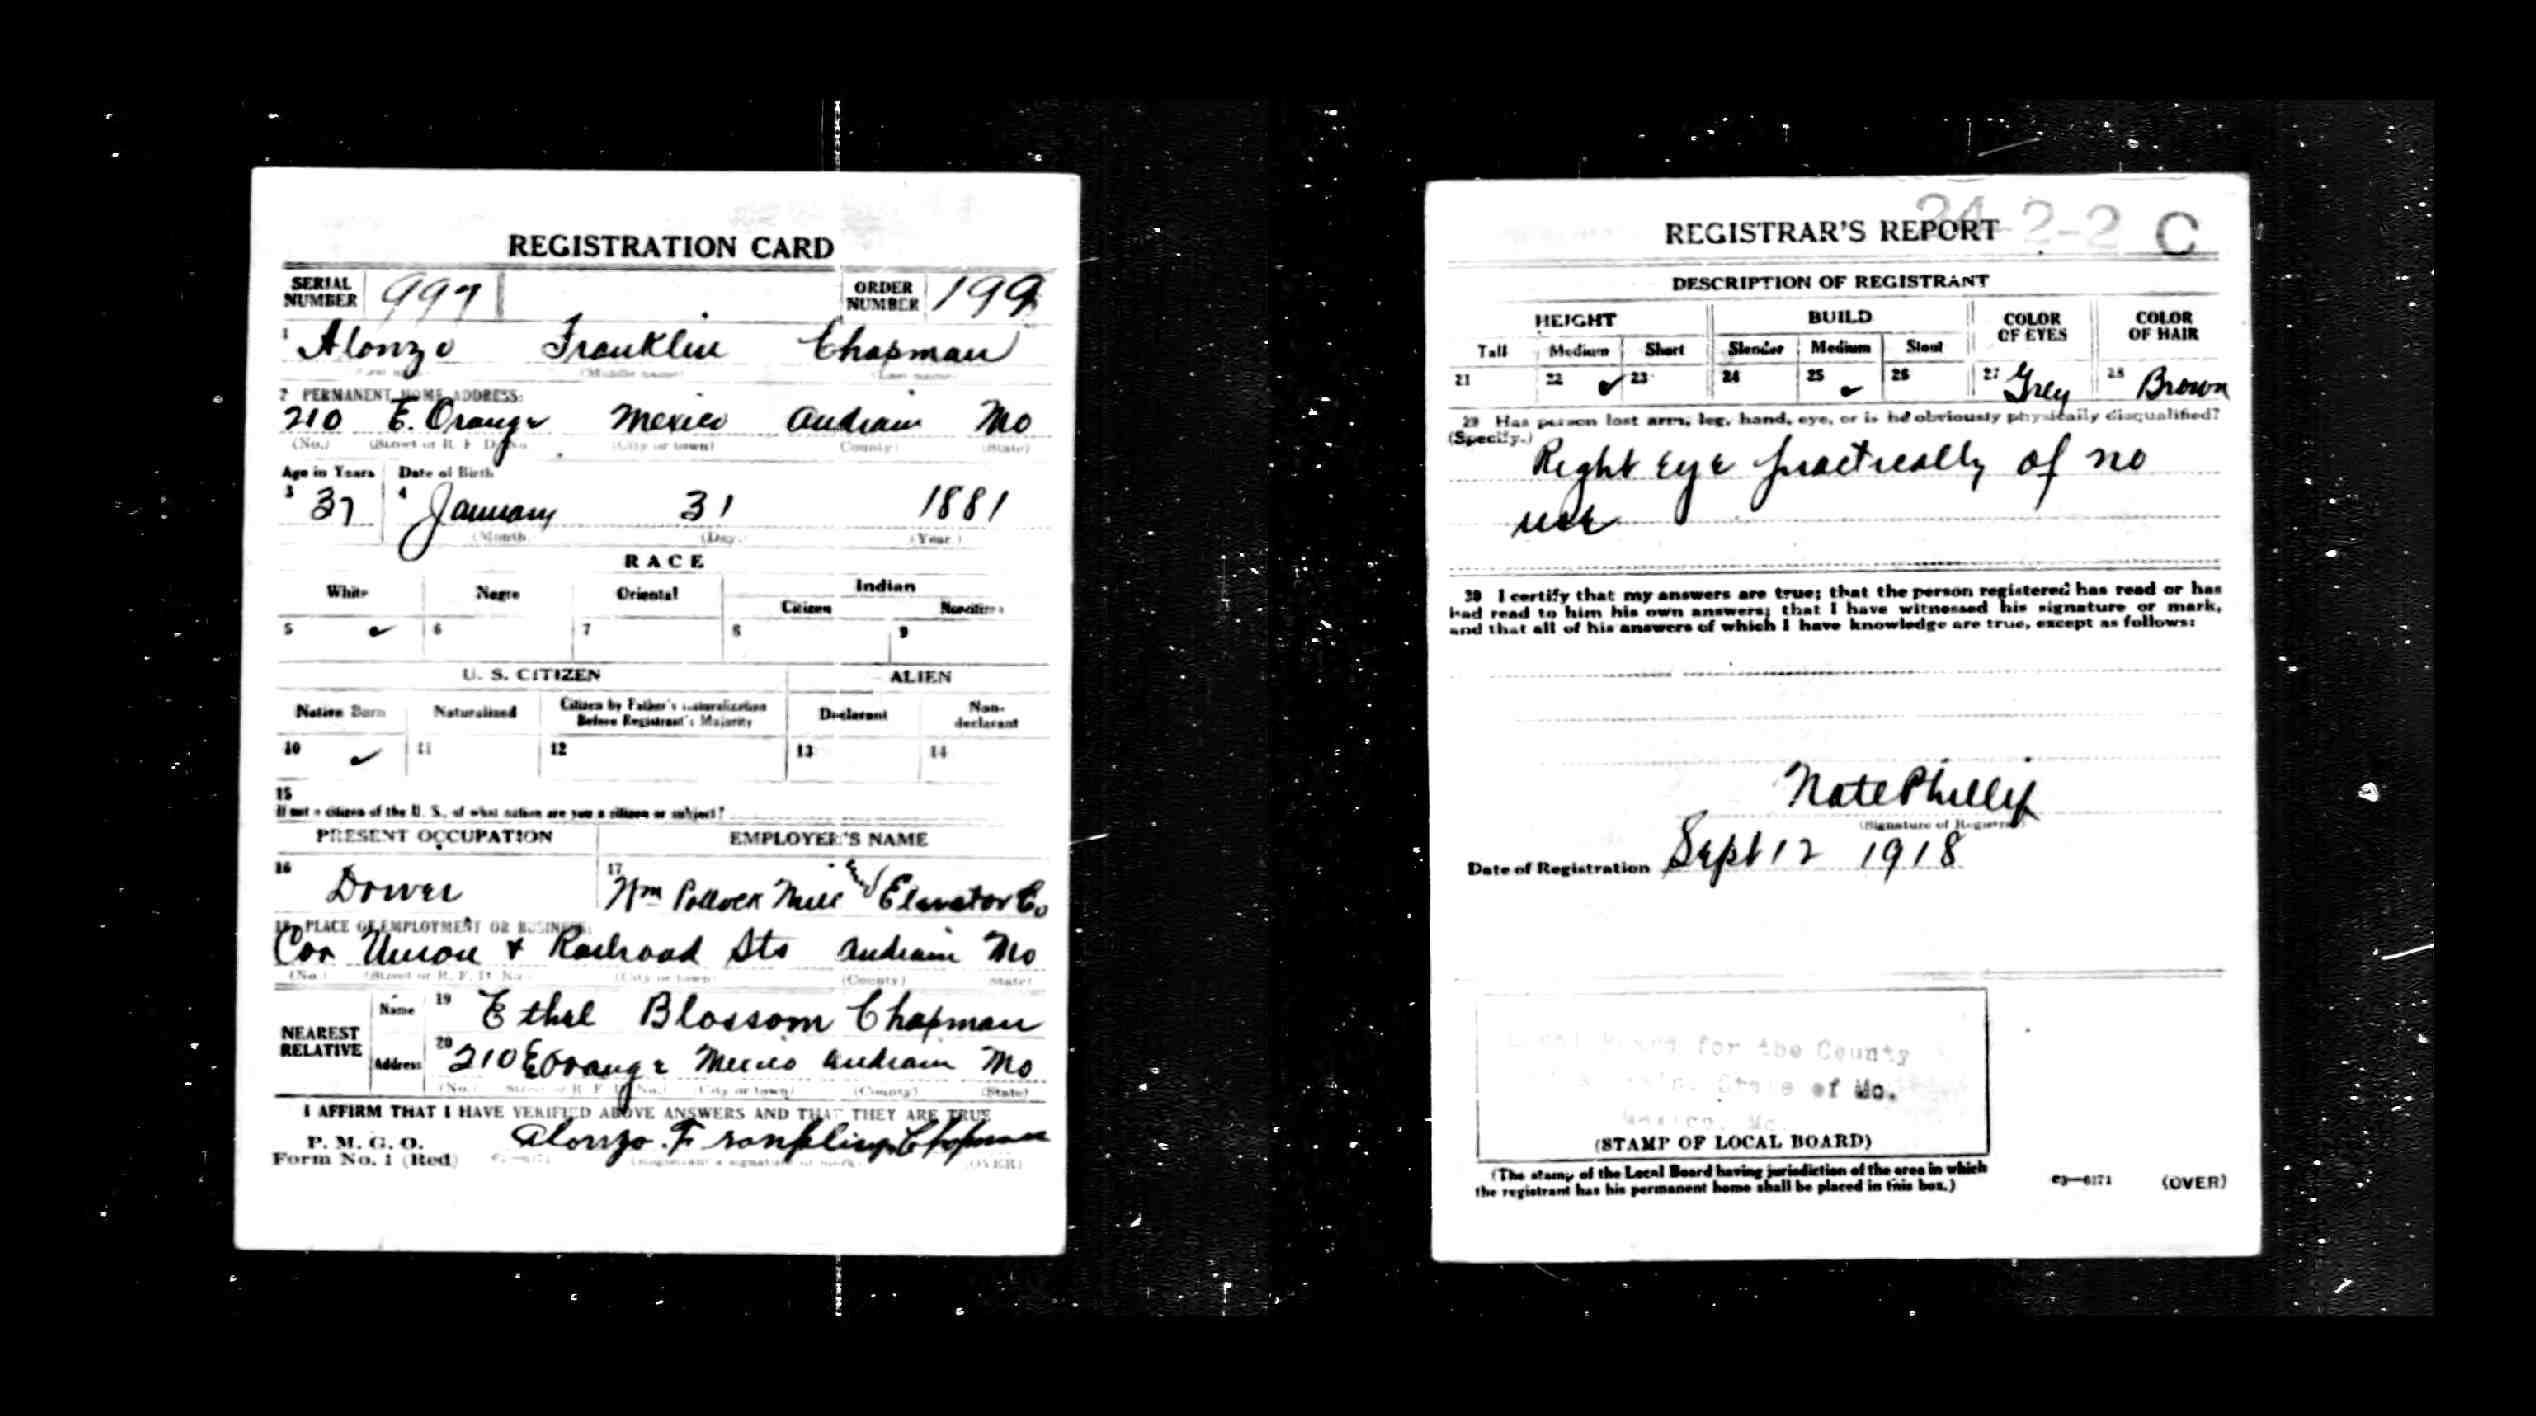 REGISTRATION CARD
SERIAL NUMBER 997 ORDER NUMBER 199
1 Alonzo Franklin Chapman
(Middle name) (Last name)
2 PERMANENT HOME ADDRESS:
210 E. Orange Mexico Audrain Mo
(No.) (Street or R. F. D. No. (City or town) (County) (State)
Age in Years Date of Birth
3 37 4 January 31 1881
(Month. (Day. (Year.)
RACE
White Negro Oriental Indian
Citizen Noncitizen
5 ✓ 6 7 8 9
U. S. CITIZEN ALIEN
Native Born Naturalized Citizen by Father's Naturalization Before Registrant's Majority Declarant Non-declarant
10 ✓ 11 12 13 14
15
If not a citizen of the U. S., of what nation are you a citizen or subject?
PRESENT OCCUPATION EMPLOYER'S NAME
16 17 Wm Pollock Mill and Elevator Co
18 PLACE OF EMPLOYMENT OR BUSINESS:
Cor Union & Railroad Sts Audrain Mo
(No.) (Street or R. F. D. No.) (City or town) (County) (State)
NEAREST RELATIVE
Name 19 Ethel Blossom Chapman
Address 20 210 E Orange Mexico Audrain Mo
(No.) (Street or R. F. D. No.) (City or town) (County) (State)
I AFFIRM THAT I HAVE VERIFIED ABOVE ANSWERS AND THAT THEY ARE TRUE
P. M. G. O.
Form No. 1 (Red) Alonzo Franklin Chapman
(Registrant's signature or mark) (OVER)
24-2-2 C
REGISTRAR'S REPORT
DESCRIPTION OF REGISTRANT
HEIGHT BUILD COLOR OF EYES COLOR OF HAIR
Tall Medium Short Slender Medium Stout
21 22 ✓ 23 24 25 ✓ 26 27 Grey 28 Brown
29 Has person lost arm, leg, hand, eye, or is he obviously physically disqualified?
(Specify.)
Right eye practically of no
use
30 I certify that my answers are true; that the person registered has read or has
had read to him his own answers; that I have witnessed his signature or mark,
and that all of his answers of which I have knowledge are true, except as follows:
Nate Phillip
(Signature of Registrar)
Date of Registration Sept 12 1918
Local Board for the County
State of Mo.
Mexico, Mo.
(STAMP OF LOCAL BOARD)
(The stamp of the Local Board having jurisdiction of the area in which
the registrant has his permanent home shall be placed in this box.)
03—6171 (OVER)